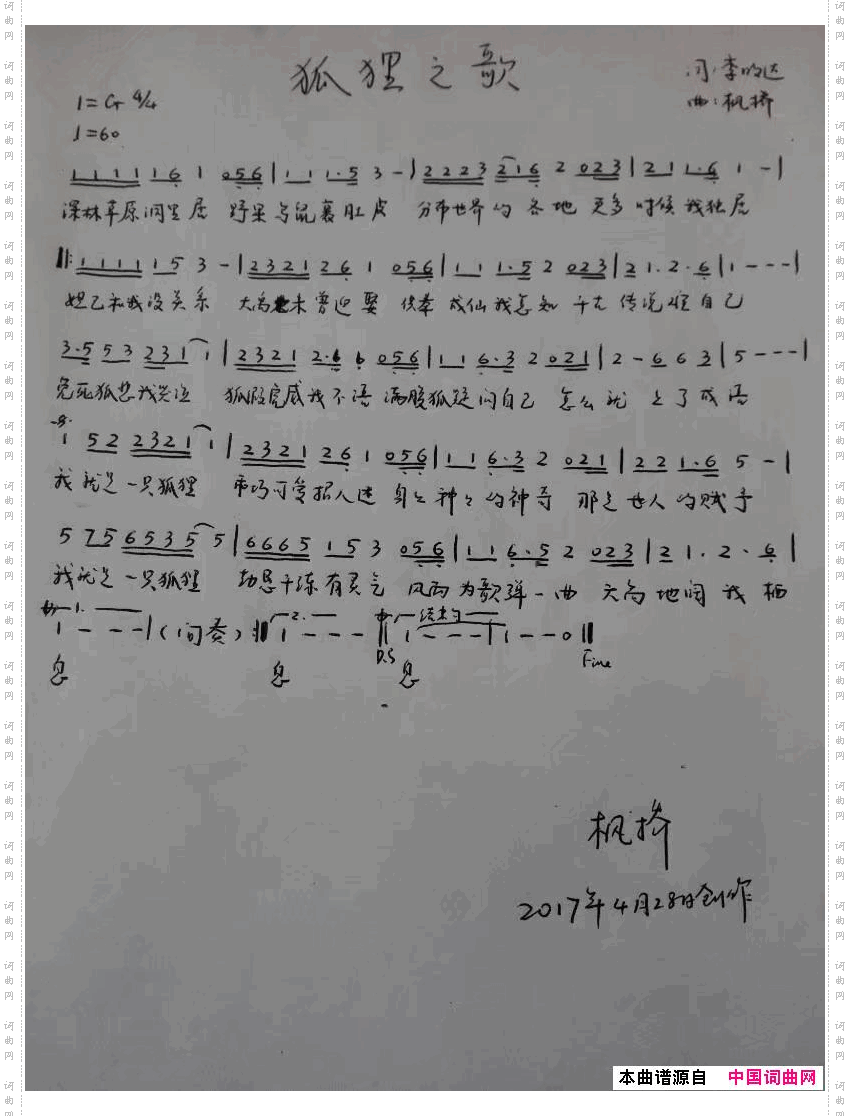 狐狸之歌
1=G 4/4
♩=60
词:李明达
曲:枫桥
1 1 1 1 1 6 1 0 5 6 | 1 1 1·5 3 - | 2 2 2 3 2 1 6 2 0 2 3 | 2 1 1·6 1 - |
深林草原洞里居 野果鸟鼠裹肚皮 分布世界的各地 更多时候我独居
‖: 1 1 1 1 1 5 3 - | 2 3 2 1 2 6 1 0 5 6 | 1 1 1·5 2 0 2 3 | 2 1·2·6 | 1 - - - |
妲己和我没关系 大禹 曾迎娶 供奉成仙我怎知 千古传说 自己
3·5 5 3 2 3 1 1 | 2 3 2 1 2·6 6 0 5 6 | 1 1 6·3 2 0 2 1 | 2 - 6 6 3 | 5 - - - |
兔死狐悲我哭泣 狐假虎威我不语 满腹狐疑问自己 怎么就 上了成语
1 5 2 2 3 2 1 1 | 2 3 2 1 2 6 1 0 5 6 | 1 1 6·3 2 0 2 1 | 2 2 1·6 5 - |
我就是一只狐狸 乖巧可爱招人迷 身上神之的神奇 那是世人的赋予
5 7 5 6 5 3 5 5 | 6 6 6 5 1 5 3 0 5 6 | 1 1 6·5 2 0 2 3 | 2 1·2·6 |
我就是一只狐狸 干练有灵气 风雨为歌弹一曲 天高地阔我栖
1. 2. 结束句
1 - - - | (间奏) :‖ 1 - - - ‖ 1 - - - | 1 - - 0 ‖
D.S Fine
息 息 息
枫桥
2017年4月28日创作
本曲谱源自 中国词曲网